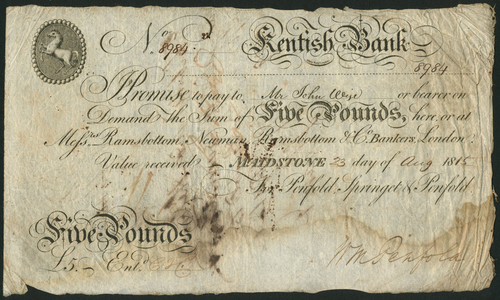 No. 8984 Kentish Bank
8984
I Promise to pay to Mr John Wise or bearer on
Demand the Sum of Five Pounds, here, or at
Messrs. Ramsbottom, Newman, Ramsbottom & Co. Bankers London.
Value received MAIDSTONE 23 day of Aug 1815
For Penfold, Springet & Penfold
Five Pounds
£5. Entd.
Wm Penfold